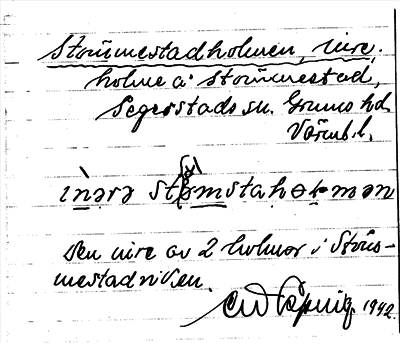 Strömmestadholmen, inre,
holme à Strömmestad,
Segerstads sn. Grums hd.
Värml. l.
ìnərə st mstahɵɫmən
Den inre av 2 holmar i Ström-
mestadviken.
1942